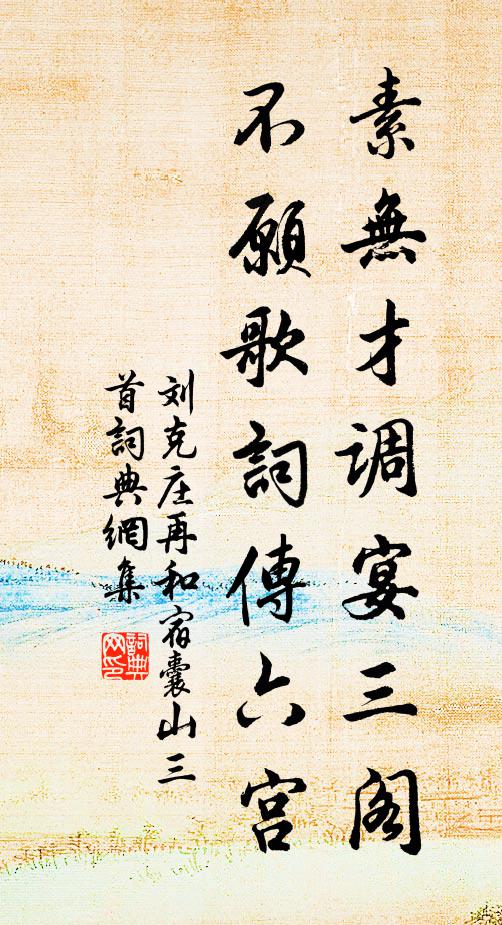 素無才调宴三阁
不願歌詞傳六宫
刘克庄再和宿囊山三
首詞典網集
詞典网印